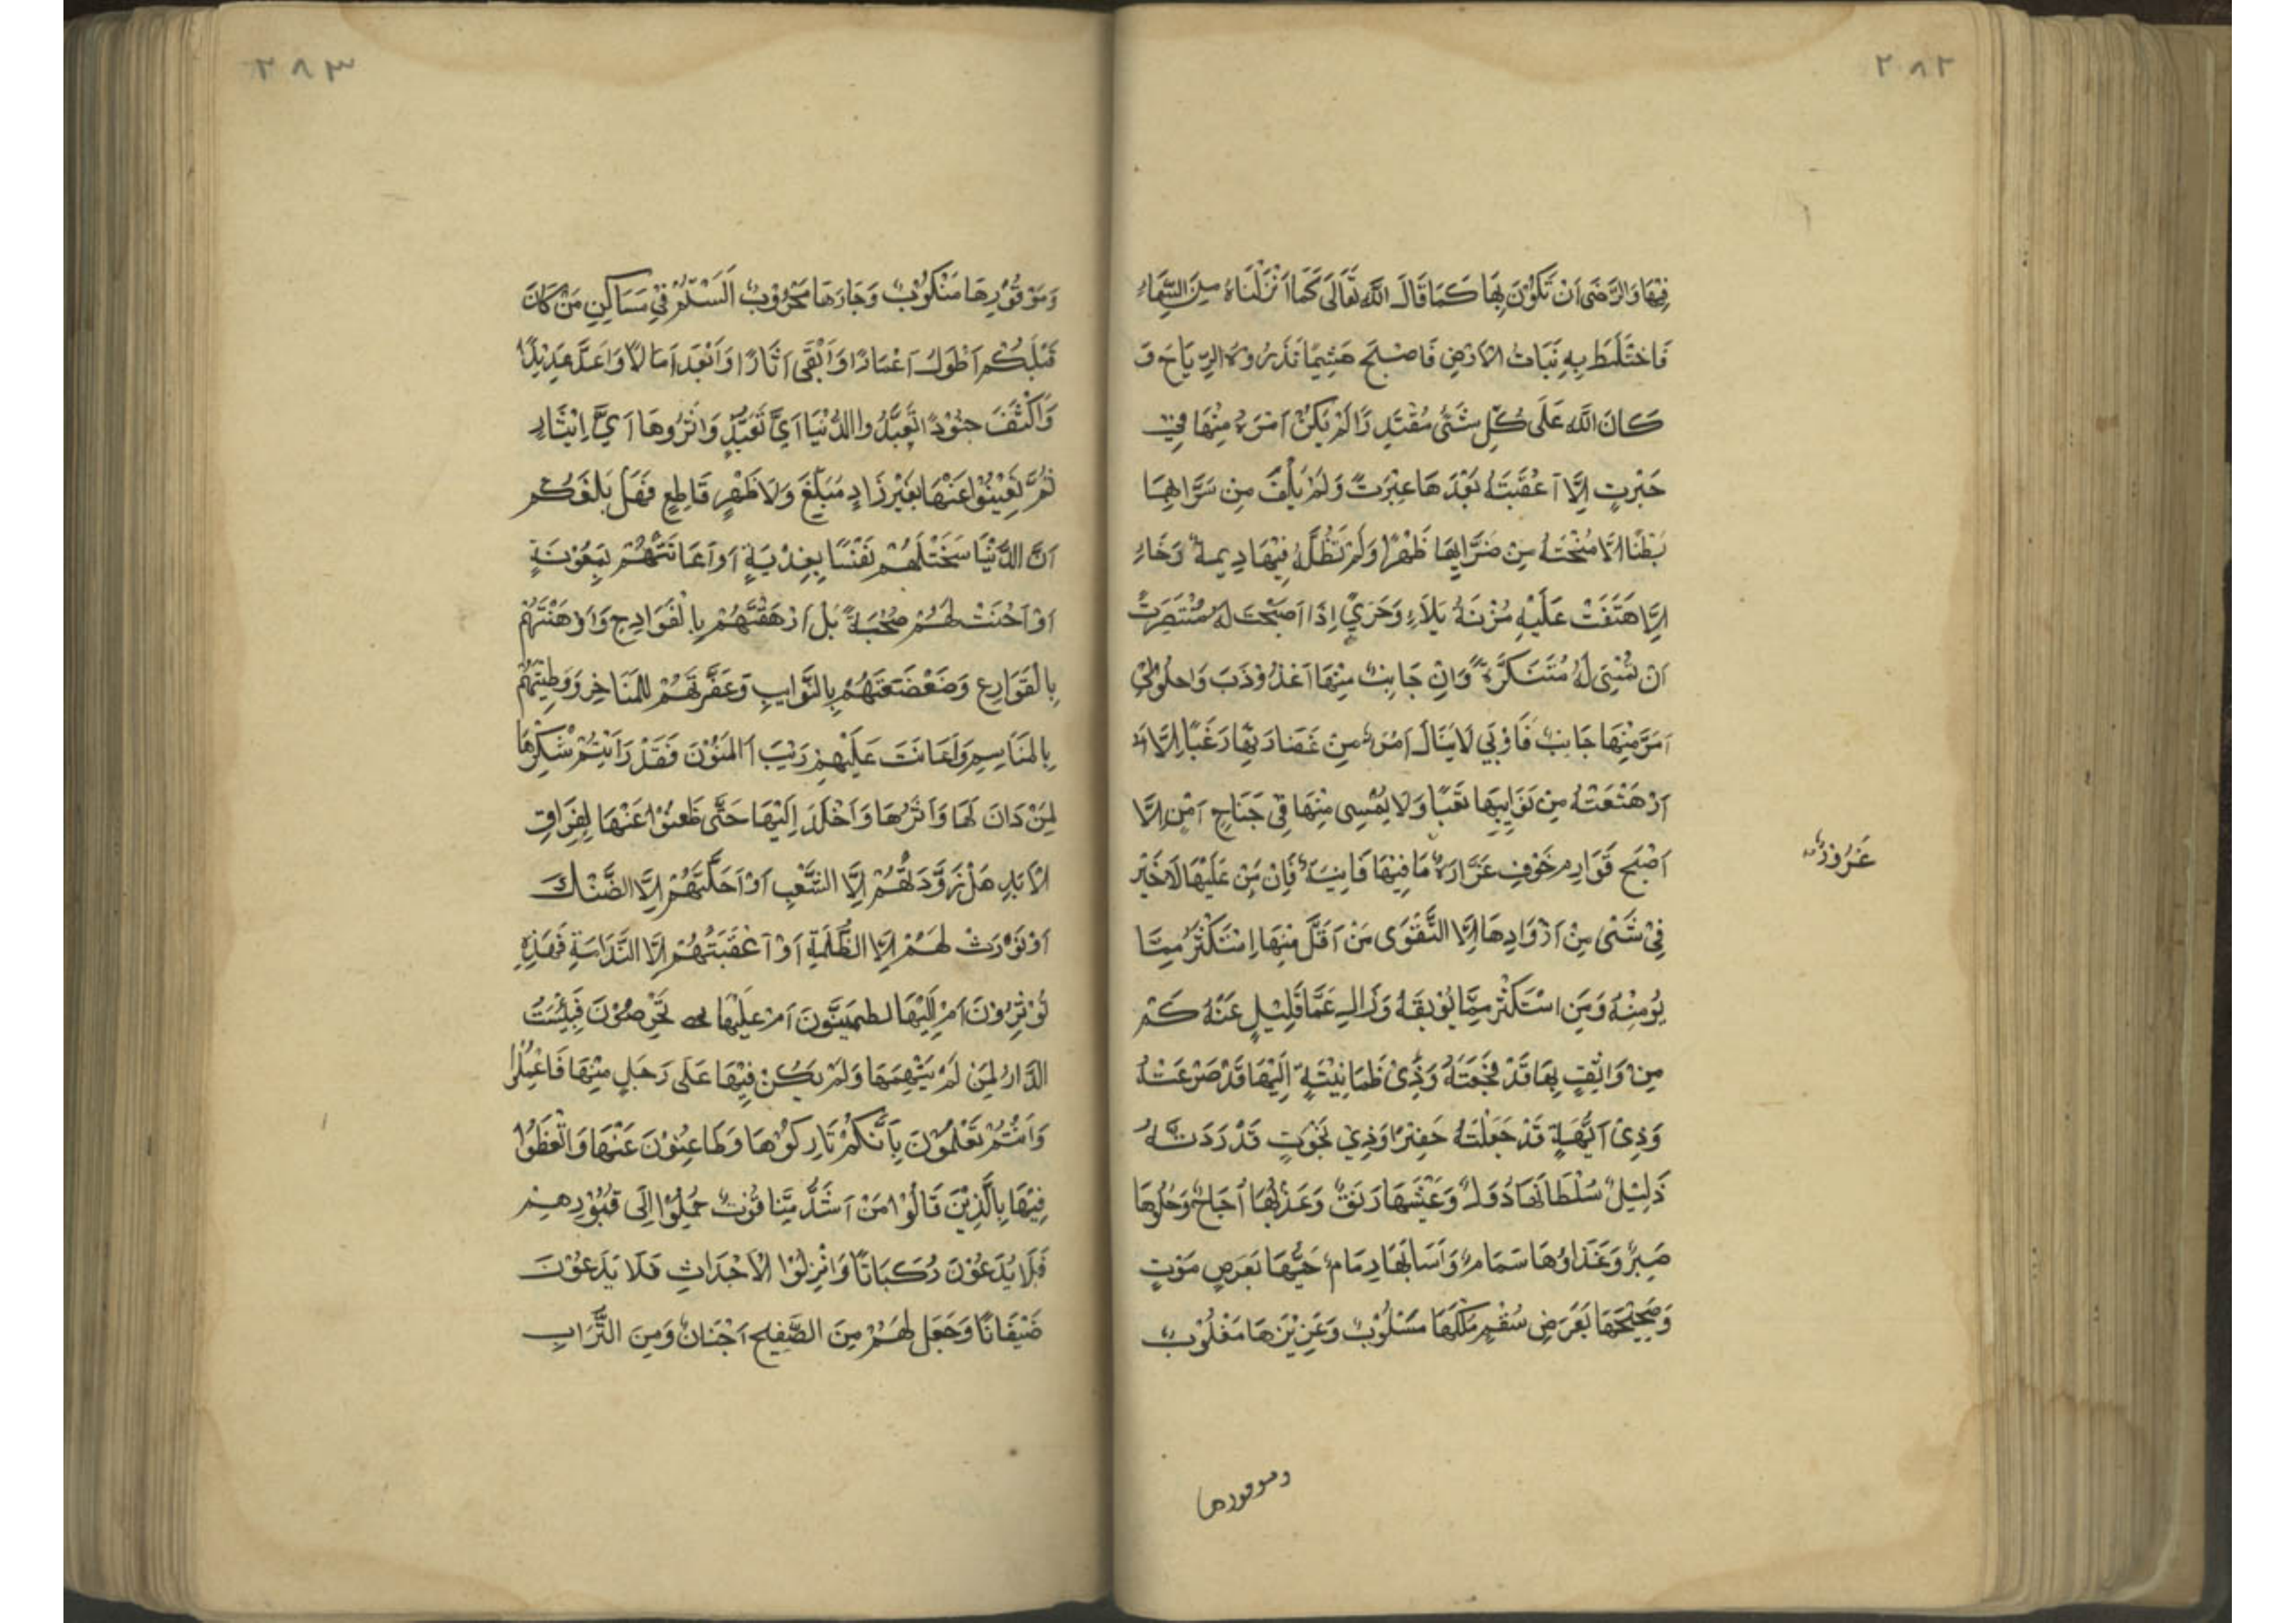 ٢٨٢
فِيْهَا وَالرِّضَى اَنْ تَكُوْنَ بِهَا كَمَا قَالَ اللّٰهُ تَعَالَى كَمَا اَنْزَلْنَاهُ مِنَ السَّمَاءِ
فَاخْتَلَطَ بِهِ نَبَاتُ الْاَرْضِ فَاصْبَحَ هَشِيْمًا تَذْرُوْهُ الرِّيَاحُ وَ
كَانَ اللّٰهُ عَلَى كُلِّ شَىْءٍ مُقْتَدِرًا لَمْ يَكُنْ اَمْرَءٌ مِنْهَا فِي
حَبْرَتٍ اِلَّا اَعْقَبَتْهُ بَعْدَهَا عِبْرَتً وَلَمْ يَلْقَ مِنْ سَرَّائِهَا
بَطْنًا اِلَّا مَنَحَتْهُ مِنْ ضَرَّائِهَا ظَهْرًا وَلَمْ تَطُلَّهُ فِيْهَا دِيمةُ رَخَاءٍ
اِلَّا هَتَفَتْ عَلَيْهِ مُزْنَةُ بَلَاءٍ وَحَرِيٌّ اِذَا اَصْبَحَتْ لَهُ مُنْتَصِرَتً
اَنْ تُمْسِىَ لَهُ مُتَنَكِّرَةً وَاِنْ جَانِبٌ مِنْهَا اعْذُوْذَبَ وَاحْلَوْلَى
اَمَرَّ مِنْهَا جَانِبٌ فَاَوْبَى لَا يَنَالُ اَمْرَءٌ مِنْ غَضَارَتِهَا رَغَبًا اِلَّا
اَرْهَقَتْهُ مِنْ نَوَايِبِهَا تَعَبًا وَلَا يُمْسِى مِنْهَا فِى جَنَاحِ اَمْنٍ اِلَّا
اَصْبَحَ قَوَادِمِ خَوْفٍ غَرَّارَةٌ مَا فِيْهَا فَانِيَةٌ فَانٍ مَنْ عَلَيْهَا لَا خَيْرَ
غَرُوْرٌ
فِىْ شَىْءٍ مِنْ اَزْوَادِهَا اِلَّا التَّقْوَى مَنْ اَقَلَّ مِنْهَا اِسْتَكْثَرَ مِمَّا
يُومِنُهُ وَمَنِ اسْتَكْثَرَ مِمَّا يُوْبِقُهُ وَزَالَ عَمَّا قَلِيْلٍ عَنْهُ كَمْ
مِنْ وَاثِقٍ بِهَا قَدْ فَجَعَتْهُ وَذِىْ طَمَانِيْنَةٍ اِلَيْهَا قَدْ صَرَعَتْهُ
وَذِىْ اُبَّهَةٍ قَدْ جَعَلَتْهُ حَقِيْرًا وَذِيْ نَخْوَتٍ قَدْ رَدَتْهُ
ذَلِيْلً سُلْطَانُهَا دُوَلٌ وَعَيْشُهَا رَنَقٌ وَعَذْبُهَا اُجَاجٌ وَحُلْوُهَا
صَبِرٌ وَغَذَاوُهَا سَمَامٌ وَاَسْبَابُهَا رِمَامٌ حَيُّهَا بِعَرَضِ مَوْتٍ
وَصَحِيْحُهَا بِعَرَضِ سُقْمٍ مُلْكُهَا مَسْلُوْبٌ وَعَزِيْزُهَا مَغْلُوْبٌ
وموفورها
٢٨٣
وَمَوْفُوْرُهَا مَنْكُوْبٌ وَجَارُهَا مَحْرُوْبٌ اَلَسْتُمْ فِيْ مَسَاكِنِ مَنْ كَانَ
قَبْلَكُمْ اَطْوَلَ اَعْمَارًا وَاَبْقَى اَثَارًا وَاَبْعَدَ اَمَالًا وَاَعَدَّ عَدِيْدًا
وَاَكْثَفَ جُنُوْدًا تَعَبَّدُوا الدُّنْيَا اَيَّ تَعَبُّدٍ وَاٰثَرُوهَا اَيَّ اِيْثَارٍ
ثُمَّ ظَعِيْنُوْا عَنْهَا بِغَيْرِ زَادٍ مُبَلِّغٍ وَلَا ظَهْرٍ قَاطِعٍ فَهَلْ بَلَغَكُمْ
اَنَّ الدُّنْيَا سَخَتْ لَهُمْ نَفْسًا بِفِدْيَةٍ اَوْ اَعَانَتْهُمْ بِمَعُوْنَةٍ
اَوْ اَحْسَنَتْ لَهُمْ صُحْبَةً بَلْ اَرْهَقَتْهُمْ بِالْفَوَادِحِ وَاَوْهَنَتْهُمْ
بِالْقَوَارِعِ وَضَعْضَعَتْهُمْ بِالنَّوَايِبِ وَعَفَّرَتْهُمْ لِلْمَنَاخِرِ وَوَطِئَتْهُمْ
بِالْمَنَاسِمِ وَاَعَانَتْ عَلَيْهِمْ رَيْبَ الْمَنُوْنِ فَقَدْ رَاَيْتُمْ تَنَكُّرَهَا
لِمَنْ دَانَ لَهَا وَاٰثَرَهَا وَاَخْلَدَ اِلَيْهَا حَتَّى ظَعَنُوْا عَنْهَا لِفِرَاقِ
الْاَبَدِ هَلْ زَوَّدَتْهُمْ اِلَّا السَّغَبَ اَوْ اَحَلَّتْهُمْ اِلَّا الضَّنْكَ
اَوْ نَوَّرَتْ لَهُمْ اِلَّا الظُّلْمَةَ اَوْ اَعْقَبَتْهُمْ اِلَّا النَّدَامَةَ فَهَذِهِ
تُوْثِرُوْنَ اَمْ اِلَيْهَا تطمَئِنُّونَ اَمْ عَلَيْهَا تَحْرِصُوْنَ فَبِئْسَتْ
الدَّارُ لِمَنْ لَمْ يَتَّهِمْهَا وَلَمْ يَكُنْ فِيْهَا عَلَى وَجَلٍ مِنْهَا فَاعْمِلُوْا
وَاَنْتُمْ تَعْلَمُوْنَ بِاَنَّكُمْ تَارِكُوْهَا وَظَاعِنُوْنَ عَنْهَا وَاتَّعِظُوْا
فِيْهَا بِالَّذِيْنَ قَالُوْا مَنْ اَشَدُّ مِنَّا قُوَّتً حُمِلُوْا اِلَى قُبُوْرِهِمْ
فَلَا يُدْعَوْنَ رُكْبَانًا وَاُنْزِلُوْا الْاَجْدَاثَ فَلَا يُدْعَوْنَ
ضِيْفَانًا وَجَعَلَ لَهُمْ مِنَ الصَّفِيْحِ اَجْنَانٌ وَمِنَ التُّرَابِ